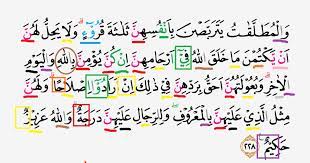 وَالْمُطَلَّقٰتُ يَتَرَبَّصْنَ بِاَنْفُسِهِنَّ ثَلٰثَةَ قُرُوْۤءٍۗ وَلَا يَحِلُّ لَهُنَّ
اَنْ يَّكْتُمْنَ مَا خَلَقَ اللّٰهُ فِيْٓ اَرْحَامِهِنَّ اِنْ كُنَّ يُؤْمِنَّ بِاللّٰهِ وَالْيَوْمِ
الْاٰخِرِۗ وَبُعُوْلَتُهُنَّ اَحَقُّ بِرَدِّهِنَّ فِيْ ذٰلِكَ اِنْ اَرَادُوْٓا اِصْلَاحًاۗ وَلَهُنَّ
مِثْلُ الَّذِيْ عَلَيْهِنَّ بِالْمَعْرُوْفِۖ وَلِلرِّجَالِ عَلَيْهِنَّ دَرَجَةٌۗ وَاللّٰهُ عَزِيْزٌ
حَكِيْمٌ ٢٢٨